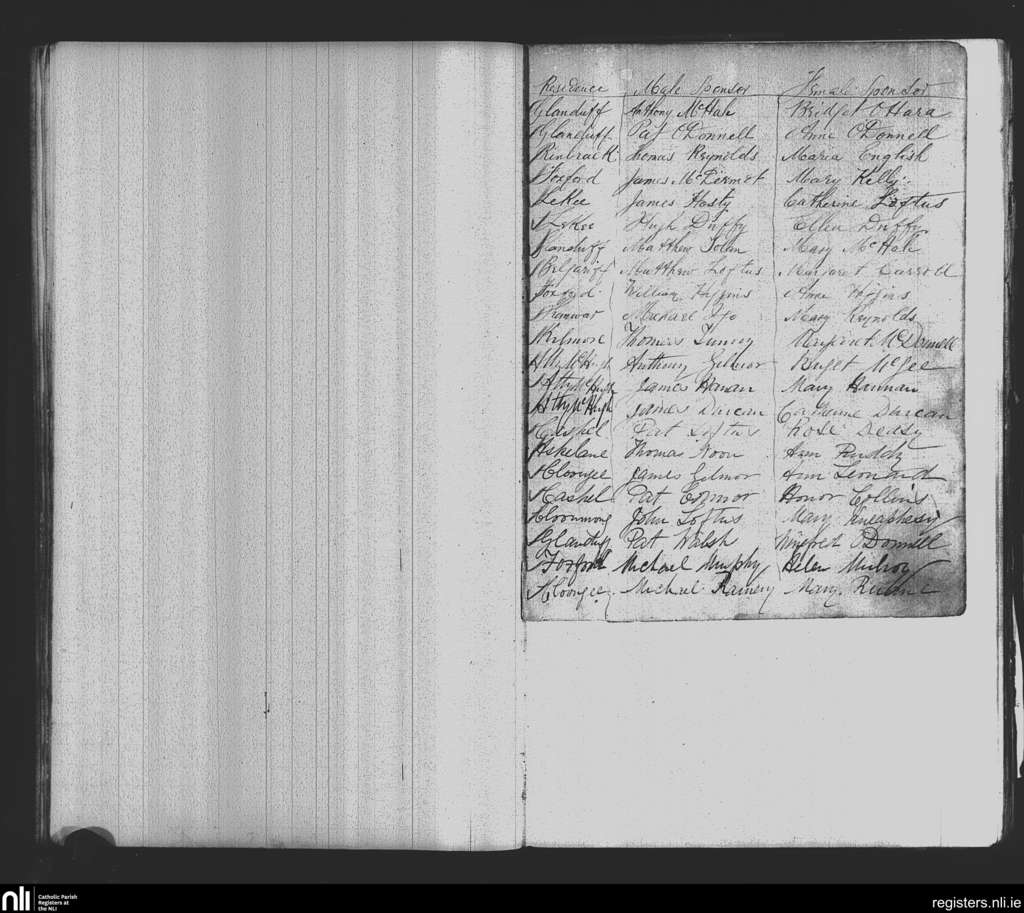 Residence Male Sponsor Female Sponsor
Glanduff Anthony McHale Bridget O'Hara
Glanduff Pat O'Donnell Anne O'Donnell
Rinbrack Thomas Reynolds Maria English
Foxford James McDermot Mary Kelly
LeKee James Hasty Catherine Loftus
LeKee Hugh Duffy Ellen Duffy
Glanduff Matthew Mary McHale
Belgariff Matthew Loftus Margaret Carroll
Foxford William Higgins Anne Higgins
Michael Mary Reynolds
Kilmore Thomas Margaret McDonnell
AttyMcHugh Anthony Gilmor McGee
AttyMcHugh James Mary Hannan
AttyMcHugh James Duncan Catherine Duncan
Cashel Pat Loftus Rose Deasy
Askelane Thomas Noon Ann Ruddy
Cloongee James Gilmor Ann Leonard
Cashel Pat Connor Honor Collins
Cloonmong John Loftus Mary
Glanduff Pat Walsh Winifred O'Donnell
Foxford Michael Murphy Helen Mulroy
Cloongee Michael Mary
nli Catholic Parish
Registers at
the NLI
registers.nli.ie